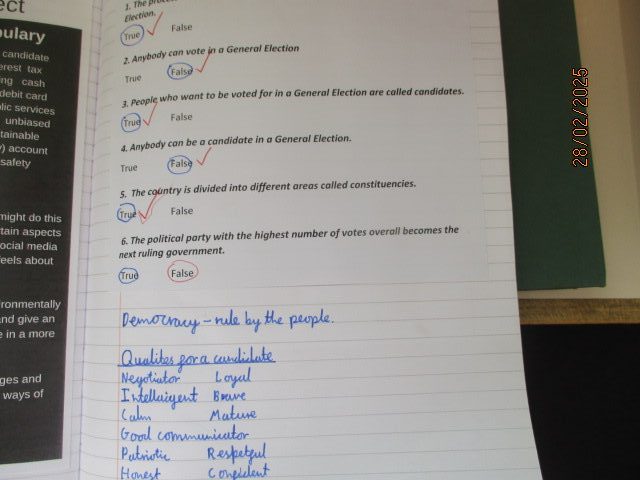 ect
bulary
candidate
erest tax
ing cash
debit card
lic services
unbiased
tainable
) account
safety
might do this
tain aspects
ocial media
feels about
ronmentally
and give an
e in a more
ges and
ways of
1. The
Election.
True False
2. Anybody can vote in a General Election
True False
3. People who want to be voted for in a General Election are called candidates.
True False
4. Anybody can be a candidate in a General Election.
True False
5. The country is divided into different areas called constituencies.
True False
6. The political party with the highest number of votes overall becomes the
next ruling government.
True False
Democracy – rule by the people.
Qualites for a candidate
Negotiator Loyal
Intellaigent Brave
Calm Mature
Good communicator
Patriotic Respetful
Honest Confident
28/02/2025